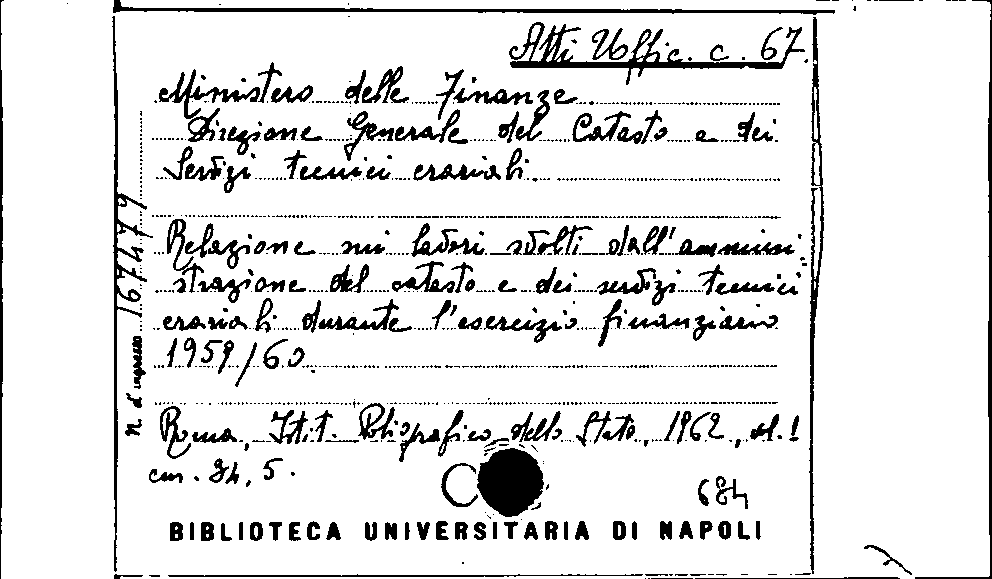 Atti Uffic. c. 67.
Ministero delle Finanze.
Direzione Generale del Catasto e dei
Servizi tecnici erariali.
Relazione sui lavori svolti dall'ammini-
strazione del catasto e dei servizi tecnici
erariali durante l'esercizio finanziario
1959/60.
Roma, Istit. Poligrafico dello Stato, 1962,
cm. 24,5.
684
N. d'ingresso 167479
BIBLIOTECA UNIVERSITARIA DI NAPOLI